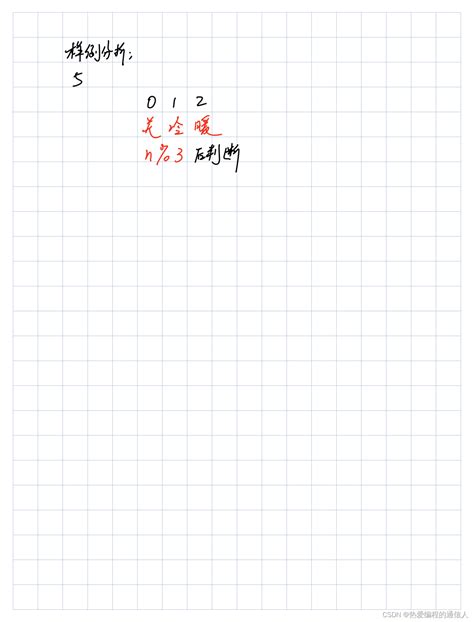 样例分析：
5
0 1 2
关 冷 暖
n%3 后判断
CSDN @热爱编程的通信人